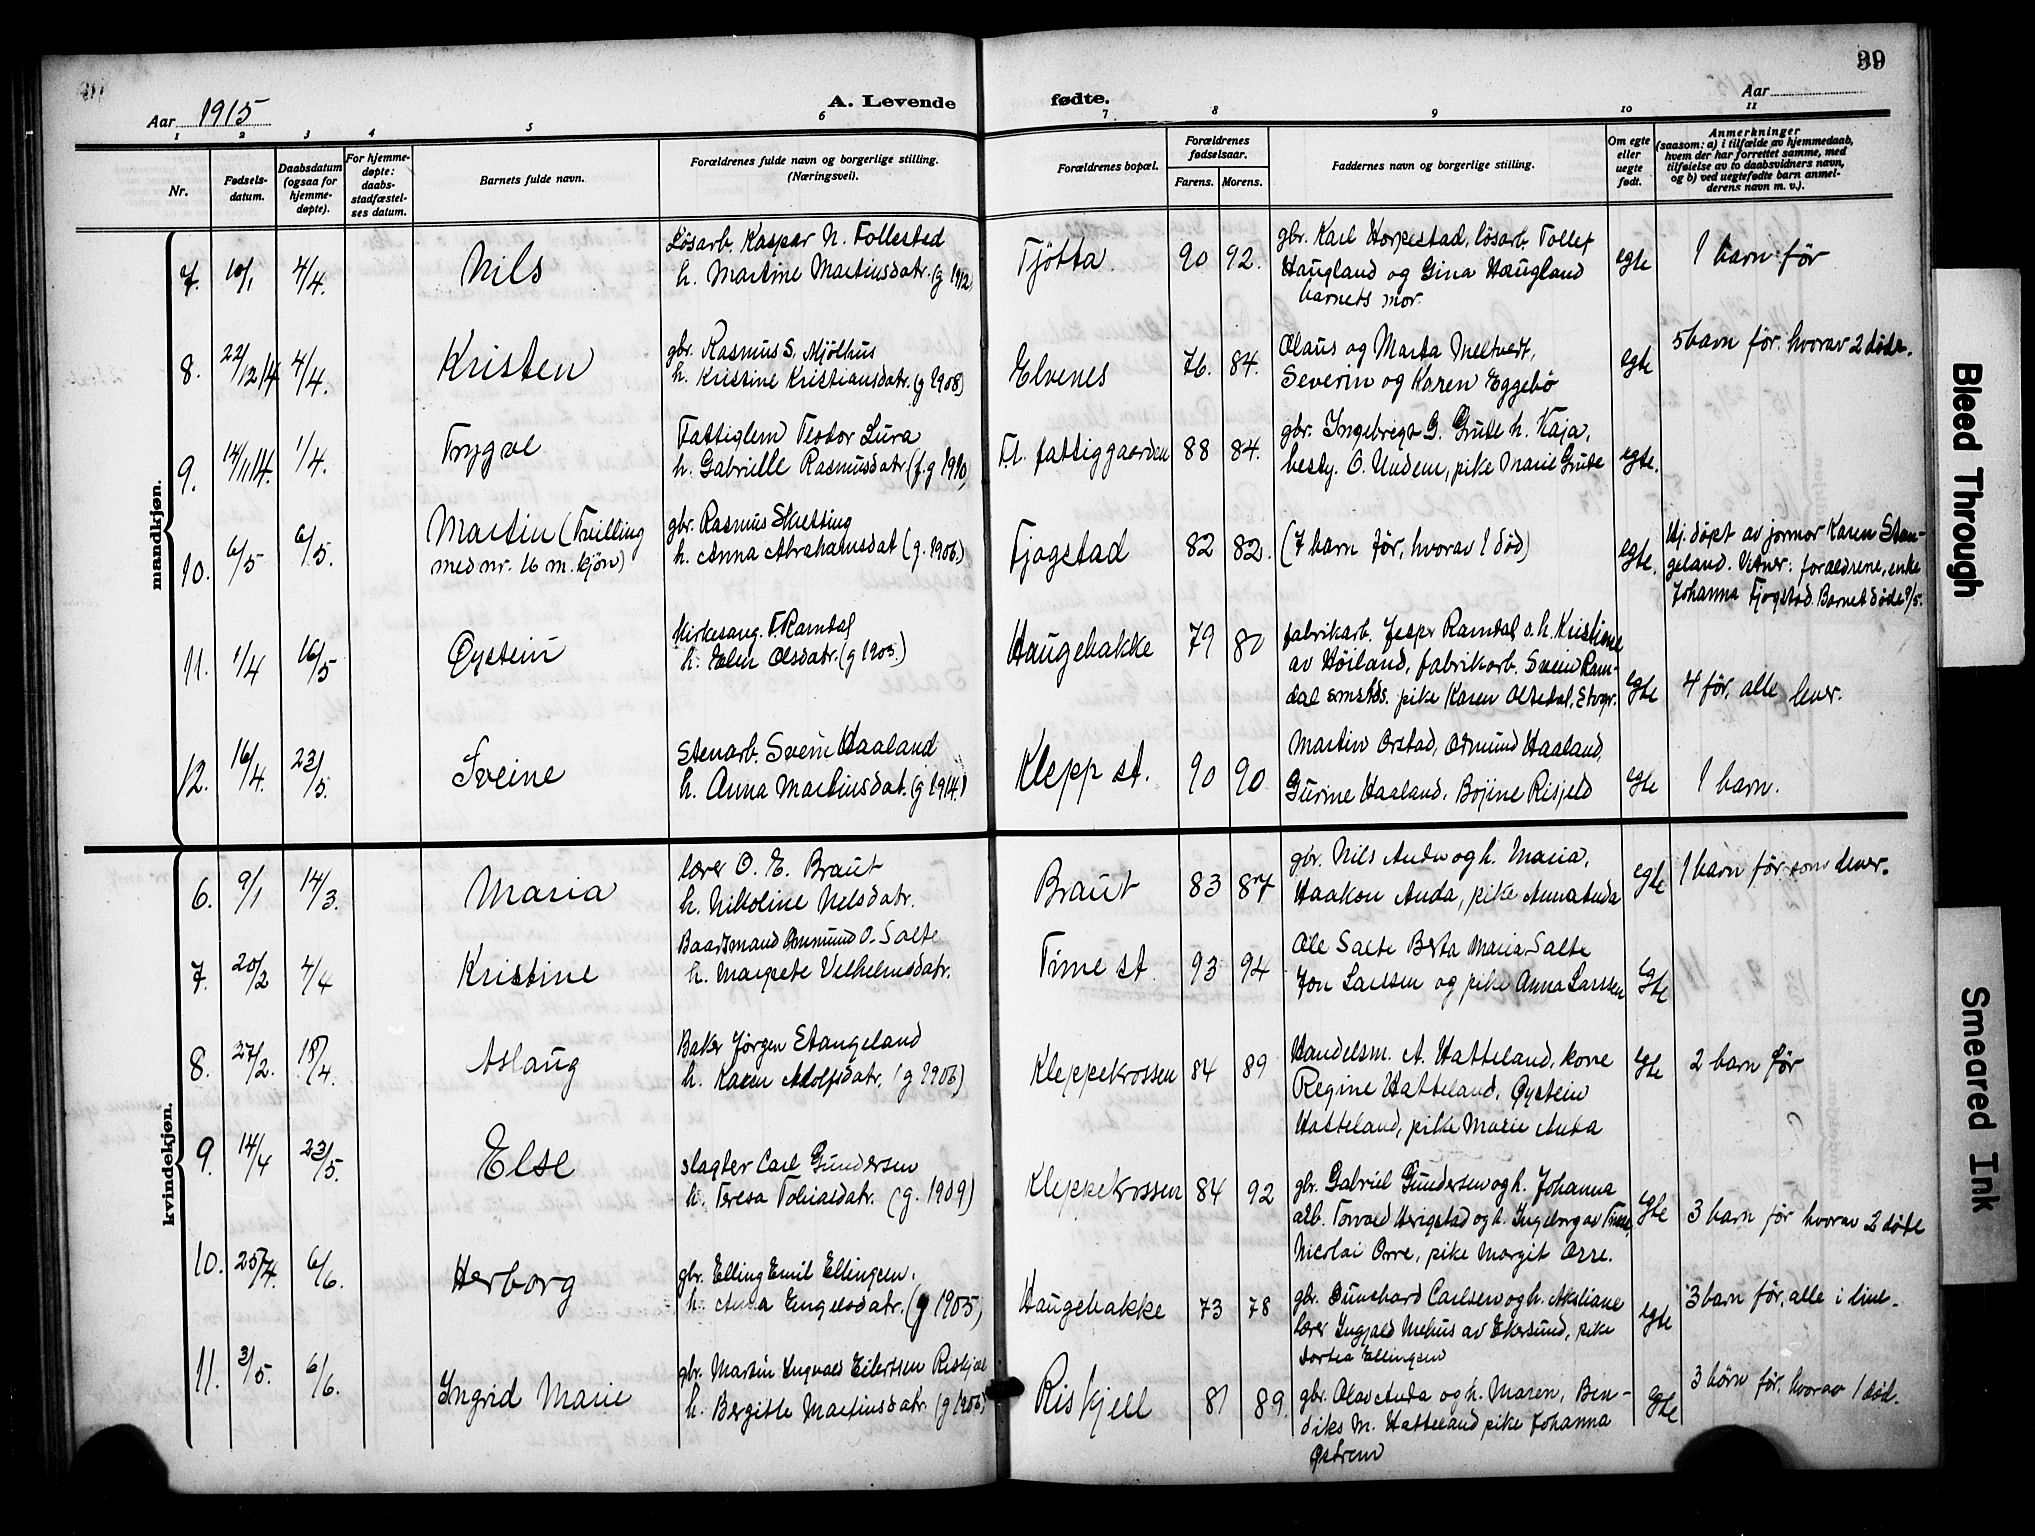 39
Aar 1915
A. Levende fødte.
Aar
1 2 3 4 5 6 7 8 9 10 11
Nr.
Fødsels-
datum.
Daabsdatum
(ogsaa for
hjemme-
døpte).
For hjemme-
døpte:
daabs-
stadfæstel-
ses datum.
Barnets fulde navn.
Forældrenes fulde navn og borgerlige stilling.
(Næringsvei).
Forældrenes bopæl.
Forældrenes
fødselsaar.
Farens. Morens.
Faddernes navn og borgerlige stilling.
Om egte
eller
uegte
født.
Anmerkninger
(saasom: a) i tilfælde av hjemmedaab,
hvem der har forrettet samme, med
tilføielse av to daabsvidners navn,
og b) ved uegtefødte barn anmel-
derens navn m. v.).
mandkjøn.
7. 10/1 4/4. Nils
Løsarb. Kaspar N. Follested
h. Martine Martinsdatr. (g 1912)
Tjøtta. 90 92.
gbr. Karl Horpestad, løsarb. Tollef
Haugland og Gina Haugland
barnets mor.
egte 1 barn før
8. 22/12 14 4/4. Kristen
gbr. Rasmus S. Mjølhus
h. Kristine Kristiansdatr. (g 1908)
Elvenes 76. 84.
Olaus og Marta
Severin og Karen Eggebø
egte 5 barn før. hvorav 2 døde.
9. 14/11 14. 1/4. Trygve
Fattiglem Teodor Lura
h. Gabrielle Rasmusdatr. (f. g 1910)
Tl. fattiggaarden 88 84.
gbr. Ingebrigt G. Grude h. Kaja,
besty. O. Undem, pike Marie Grude
egte.
10. 6/5 6/5. Martin (Tvilling
med nr. 16 m. kjøn)
gbr. Rasmus Skretting
h. Anna Abrahamsdat (g. 1906)
Fjogstad 82 82.
(7 barn før, hvorav 1 død)
egte.
Hj. døpt av jormor Karen Stan-
geland. Vitner: forældrene, enke
Johanna Fjogstad. Barnet døde 9/5.
11. 1/4 16/5 Øystein
Kirkesang. T Ramdal
h. Elen Olsdatr. (g 1905.)
Haugebakke 79 80
fabrikarb. Jesper Ramdal o. h. Kristiane
av Høiland, fabrikarb. Svein Ram-
dal smstds. pike Karen Oltedal, Stvgr.
egte 4 før, alle lever.
12. 16/4. 23/5. Sveine
Stenarb. Svein Haaland
h. Anna Martinsdat. (g 1914.)
Klepp st. 90 90
Martin Orstad, Osmund Haaland,
Gurine Haaland, Bojine Risjeld
egte 1 barn.
kvindekjøn.
6. 9/1 14/3. Maria
lærer O. E. Braut
h. Nikoline Nelsdatr.
Braut 83 87
gbr. Nils Anda og h. Maria,
Haakon Anda, pike Anna Anda
egte 1 barn før som lever.
7. 20/2 4/4 Kristine
Baadsmand Ommund O. Salte
h. Margrete Vilhelmsdatr.
Time st. 93 94
Ole Salte Berta Maria Salte
Jon Larssen og pike Anna Larssen
egte
8. 27/2. 18/4. Aslaug
Baker Jørgen Stangeland
h. Karen Adolfsdatr. (g 1906)
Kleppekrossen 84 89
Handelsm. A. Hatteland, kone
Regine Hatteland, Øystein
Hatteland, pike Marie Anda
egte 2 barn før
9. 14/4 23/5. Else
slagter Carl Gundersen
h. Teresa Tobiasdatr. (g. 1909)
Kleppekrossen 84 92
gbr. Gabriel Gundersen og h. Johanna
arb. Torvald Herigstad og h. Ingeborg av Time,
Nicolai Orre, pike Margit Orre.
egte 3 barn før hvorav 2 døde
10. 25/4. 6/6. Herborg
gbr. Elling Emil Ellingsen.
h. Anna Engelsdatr. (g 1905)
Haugebakke 73 78
gbr. Gunehard Carlsen og h. Akseliane
lærer Ingjald Mehus av Ekersund, pike
Dortea Ellingsen
egte 3 barn før, alle i live.
11. 3/5. 6/6. Ingrid Marie
gbr. Martin Ingvald Eilertsen Riskjell
h. Bergitte Martinsdatr. (g 1906)
Riskjell 81 89.
gbr. Olav Anda og h. Maren, Ben-
diks M. Hatteland pike Johanna
Østrem
egte 3 børn før, hvorav 1 død.
Bleed Through
Smeared Ink